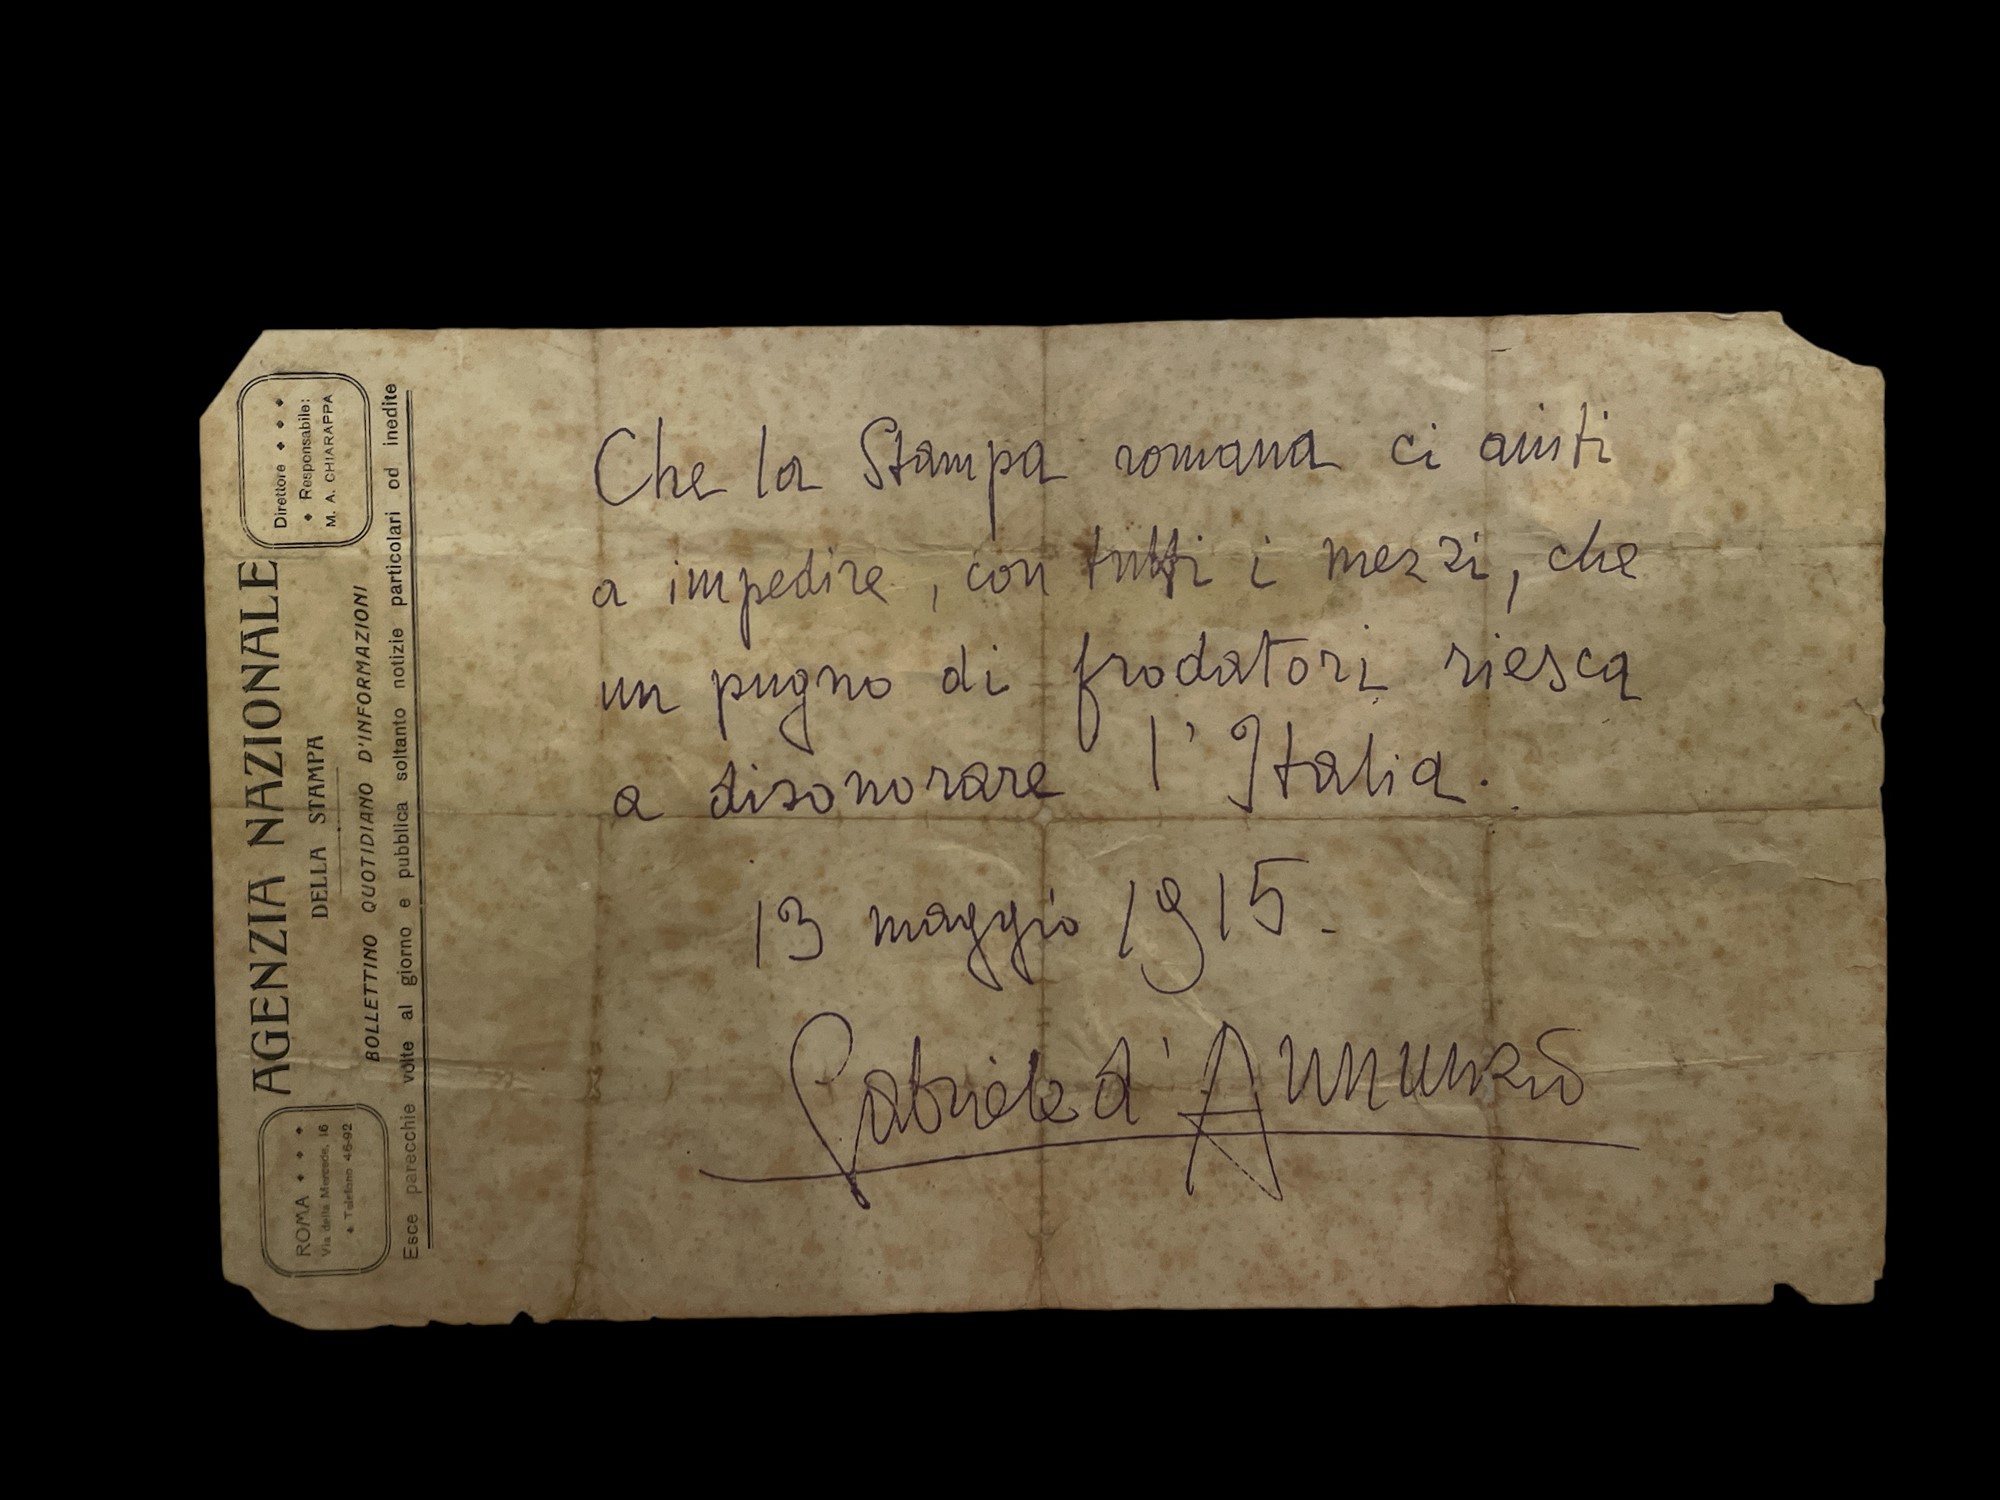 AGENZIA NAZIONALE
DELLA STAMPA
BOLLETTINO QUOTIDIANO D'INFORMAZIONI
Esce parecchie volte al giorno e pubblica soltanto notizie particolari od inedite
ROMA
Via della Mercede, 16
Telefono 46-92
Direttore
Responsabile:
M. A. CHIARAPPA
Che la Stampa romana ci aiuti
a impedire, con tutti i mezzi, che
un pugno di frodatori riesca
a disonorare l'Italia.
13 maggio 1915.
Gabriele d'Annunzio